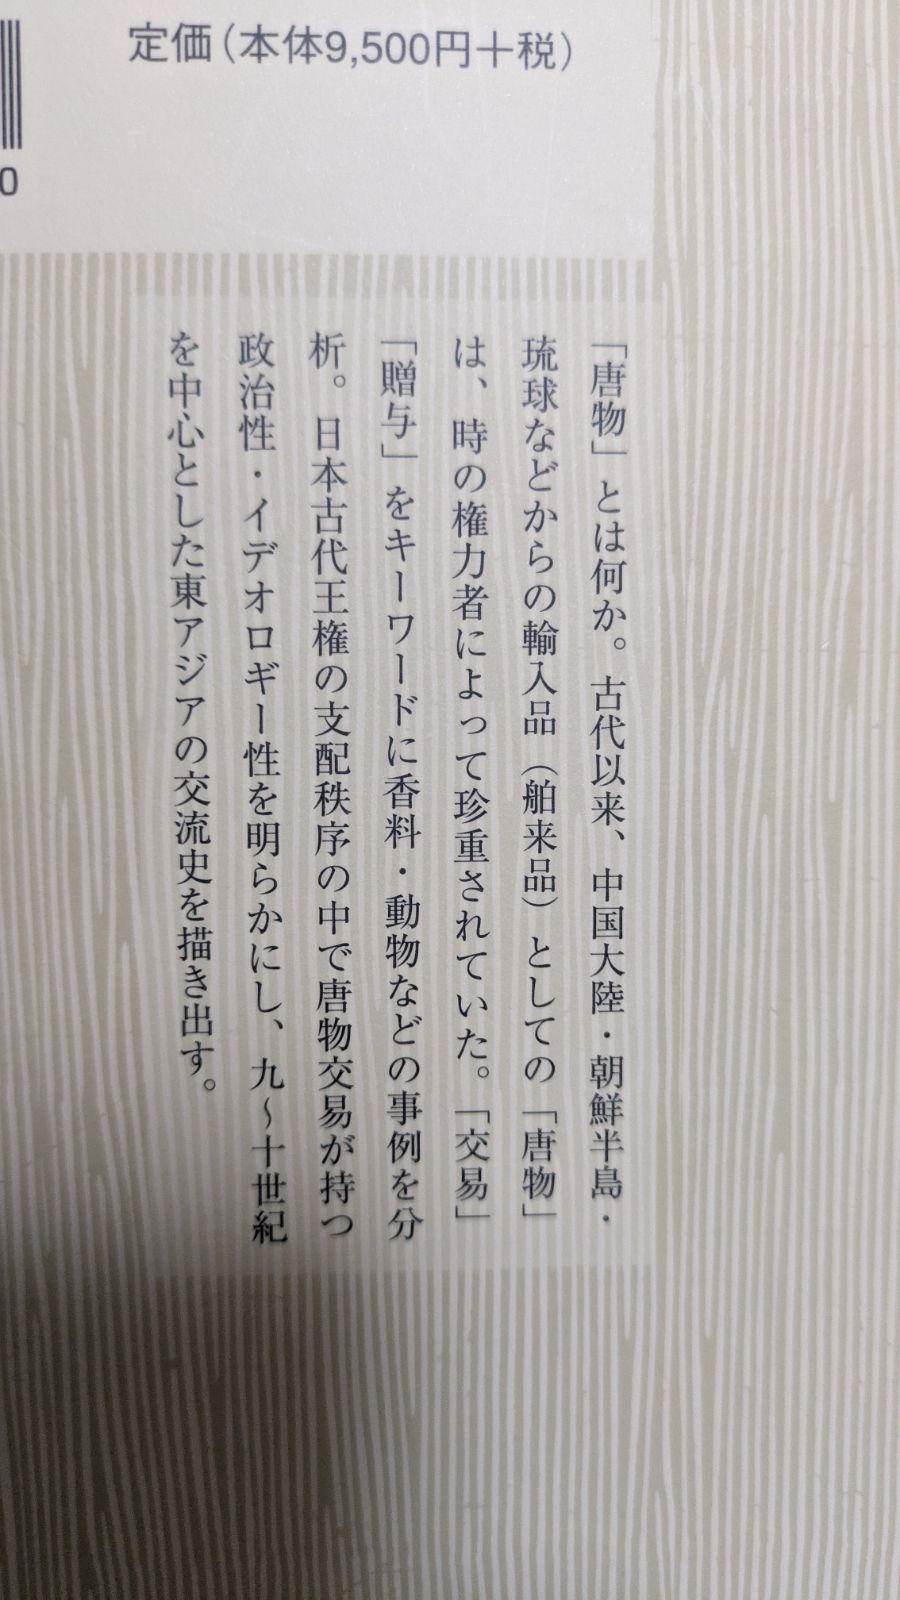 定価(本体9,500円+税)
0
「唐物」とは何か。古代以来、中国大陸・朝鮮半島・
琉球などからの輸入品(舶来品)としての「唐物」
は、時の権力者によって珍重されていた。「交易」
「贈与」をキーワードに香料・動物などの事例を分
析。日本古代王権の支配秩序の中で唐物交易が持つ
政治性・イデオロギー性を明らかにし、九〜十世紀
を中心とした東アジアの交流史を描き出す。